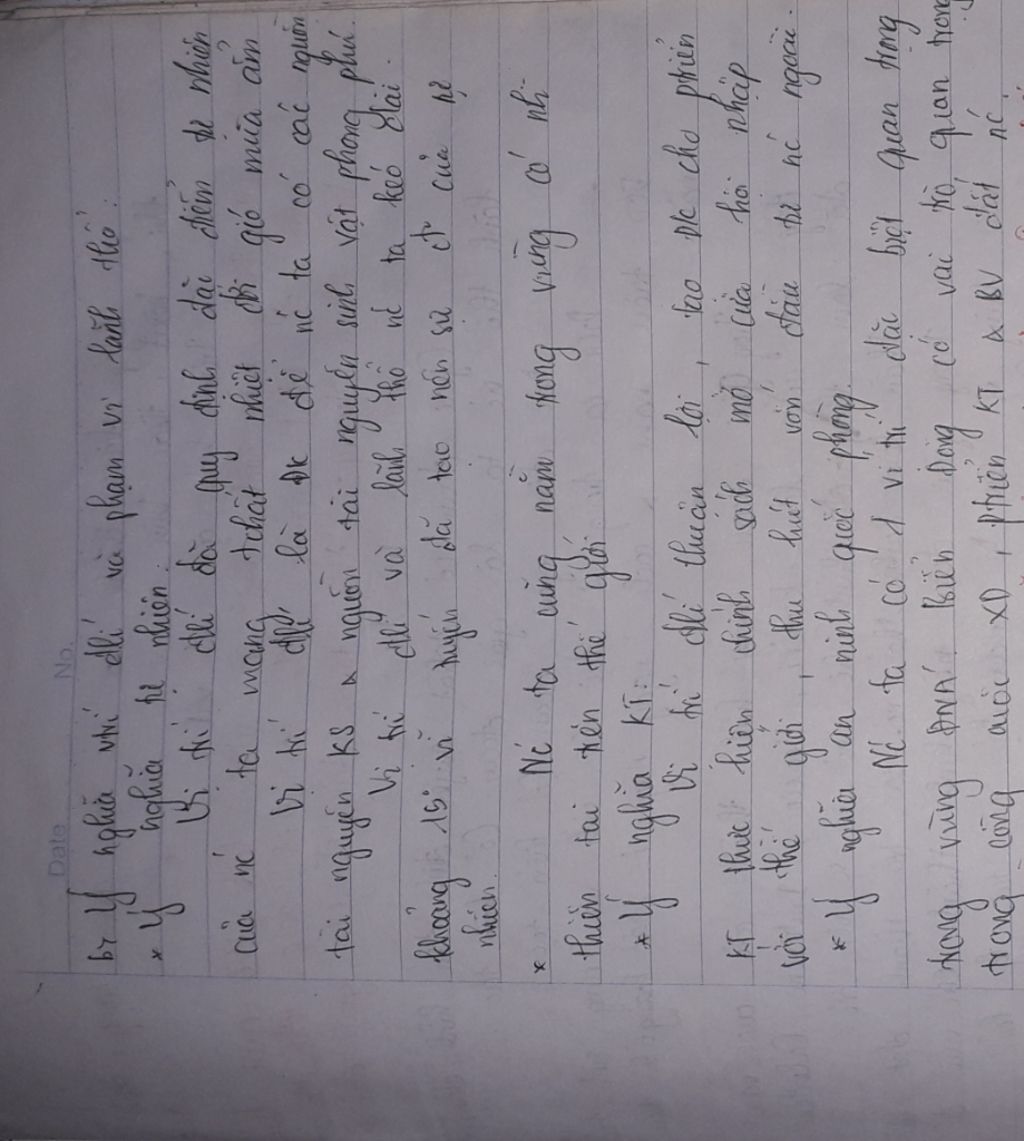 No.
Date
b, Ý nghĩa vtrí đlí và phạm vi lãnh thổ:
* Ý nghĩa tự nhiên.
Vị trí đlí đã quy định đặc điểm tự nhiên
của nc ta mang tchất nhiệt đới gió mùa ẩm
Vị trí đlí là đk để nc ta có các nguồn
tài nguyên KS & nguồn tài nguyên sinh vật phong phú.
Vị trí đlí và lãnh thổ nc ta kéo dài
khoảng 15° vĩ tuyến đã tạo nên sự của tự
nhiên.
* Nc ta cũng nằm trong vùng có nh
thiên tai trên thế giới.
* Ý nghĩa KT:
Vị trí đlí thuận lợi, tạo đk cho phtriển
KT thực hiện chính sách mở cửa hội nhập
với thế giới, thu hút vốn đầu tư nc ngoài.
* Ý nghĩa an ninh quốc phòng.
Nc ta có 1 vị trí đặc biệt quan trọng
trong vùng ĐNÁ. Biển Đông có vai trò quan trọng
trong công cuộc XD, ptriển KT & BV đất nc